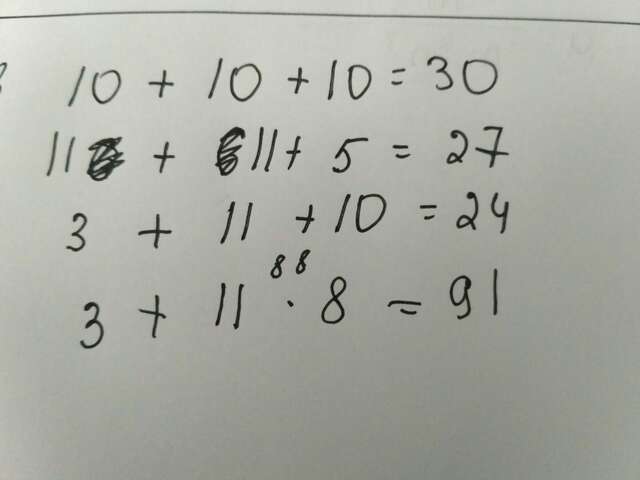 10 + 10 + 10 = 30
11 + 11 + 5 = 27
3 + 11 + 10 = 24
88
3 + 11 · 8 = 91